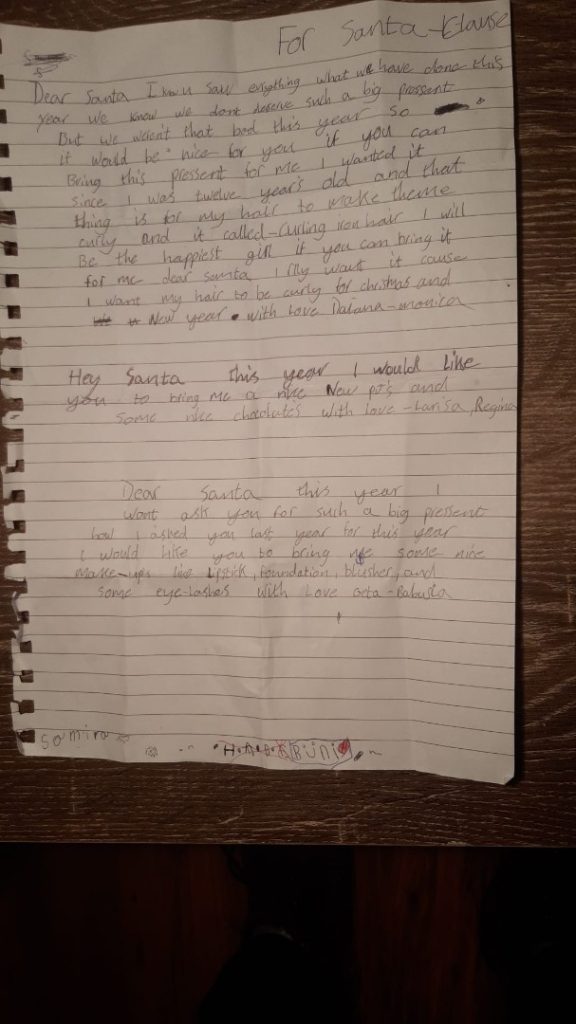 For Santa-Klause
Dear Santa I know saw everything what we have done this
year we know we dont deserve such a big pressent
But we weren't that bad this year so
it would be nice for you if you can
Bring this pressent for me I wanted it
since I was twelve years old and that
thing is for my hair to make theme
curly and it called-Curling iron hair I will
Be the happiest girl if you can bring it
for me dear santa I rlly want it cause
I want my hair to be curly for christmas and
New year. with Love Daiana-monica
Hey Santa this year I would Like
you to bring me a nice New pJ's and
some nice chocolates with Love-Larisa, Regina
Dear Santa this year I
Wont ask you for such a big pressent
how I ashed you last year for this year
I would like you to bring me some nice
make-ups like Lipstick, foundation, blusher, and
some eye-lashes with Love
somira